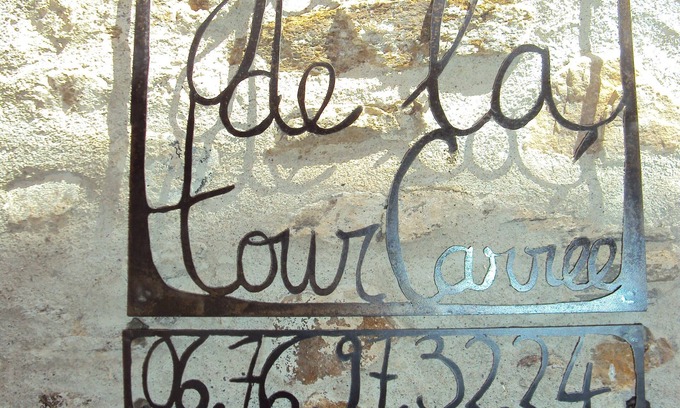 de la
tour Carrée
06.76 97.32.24